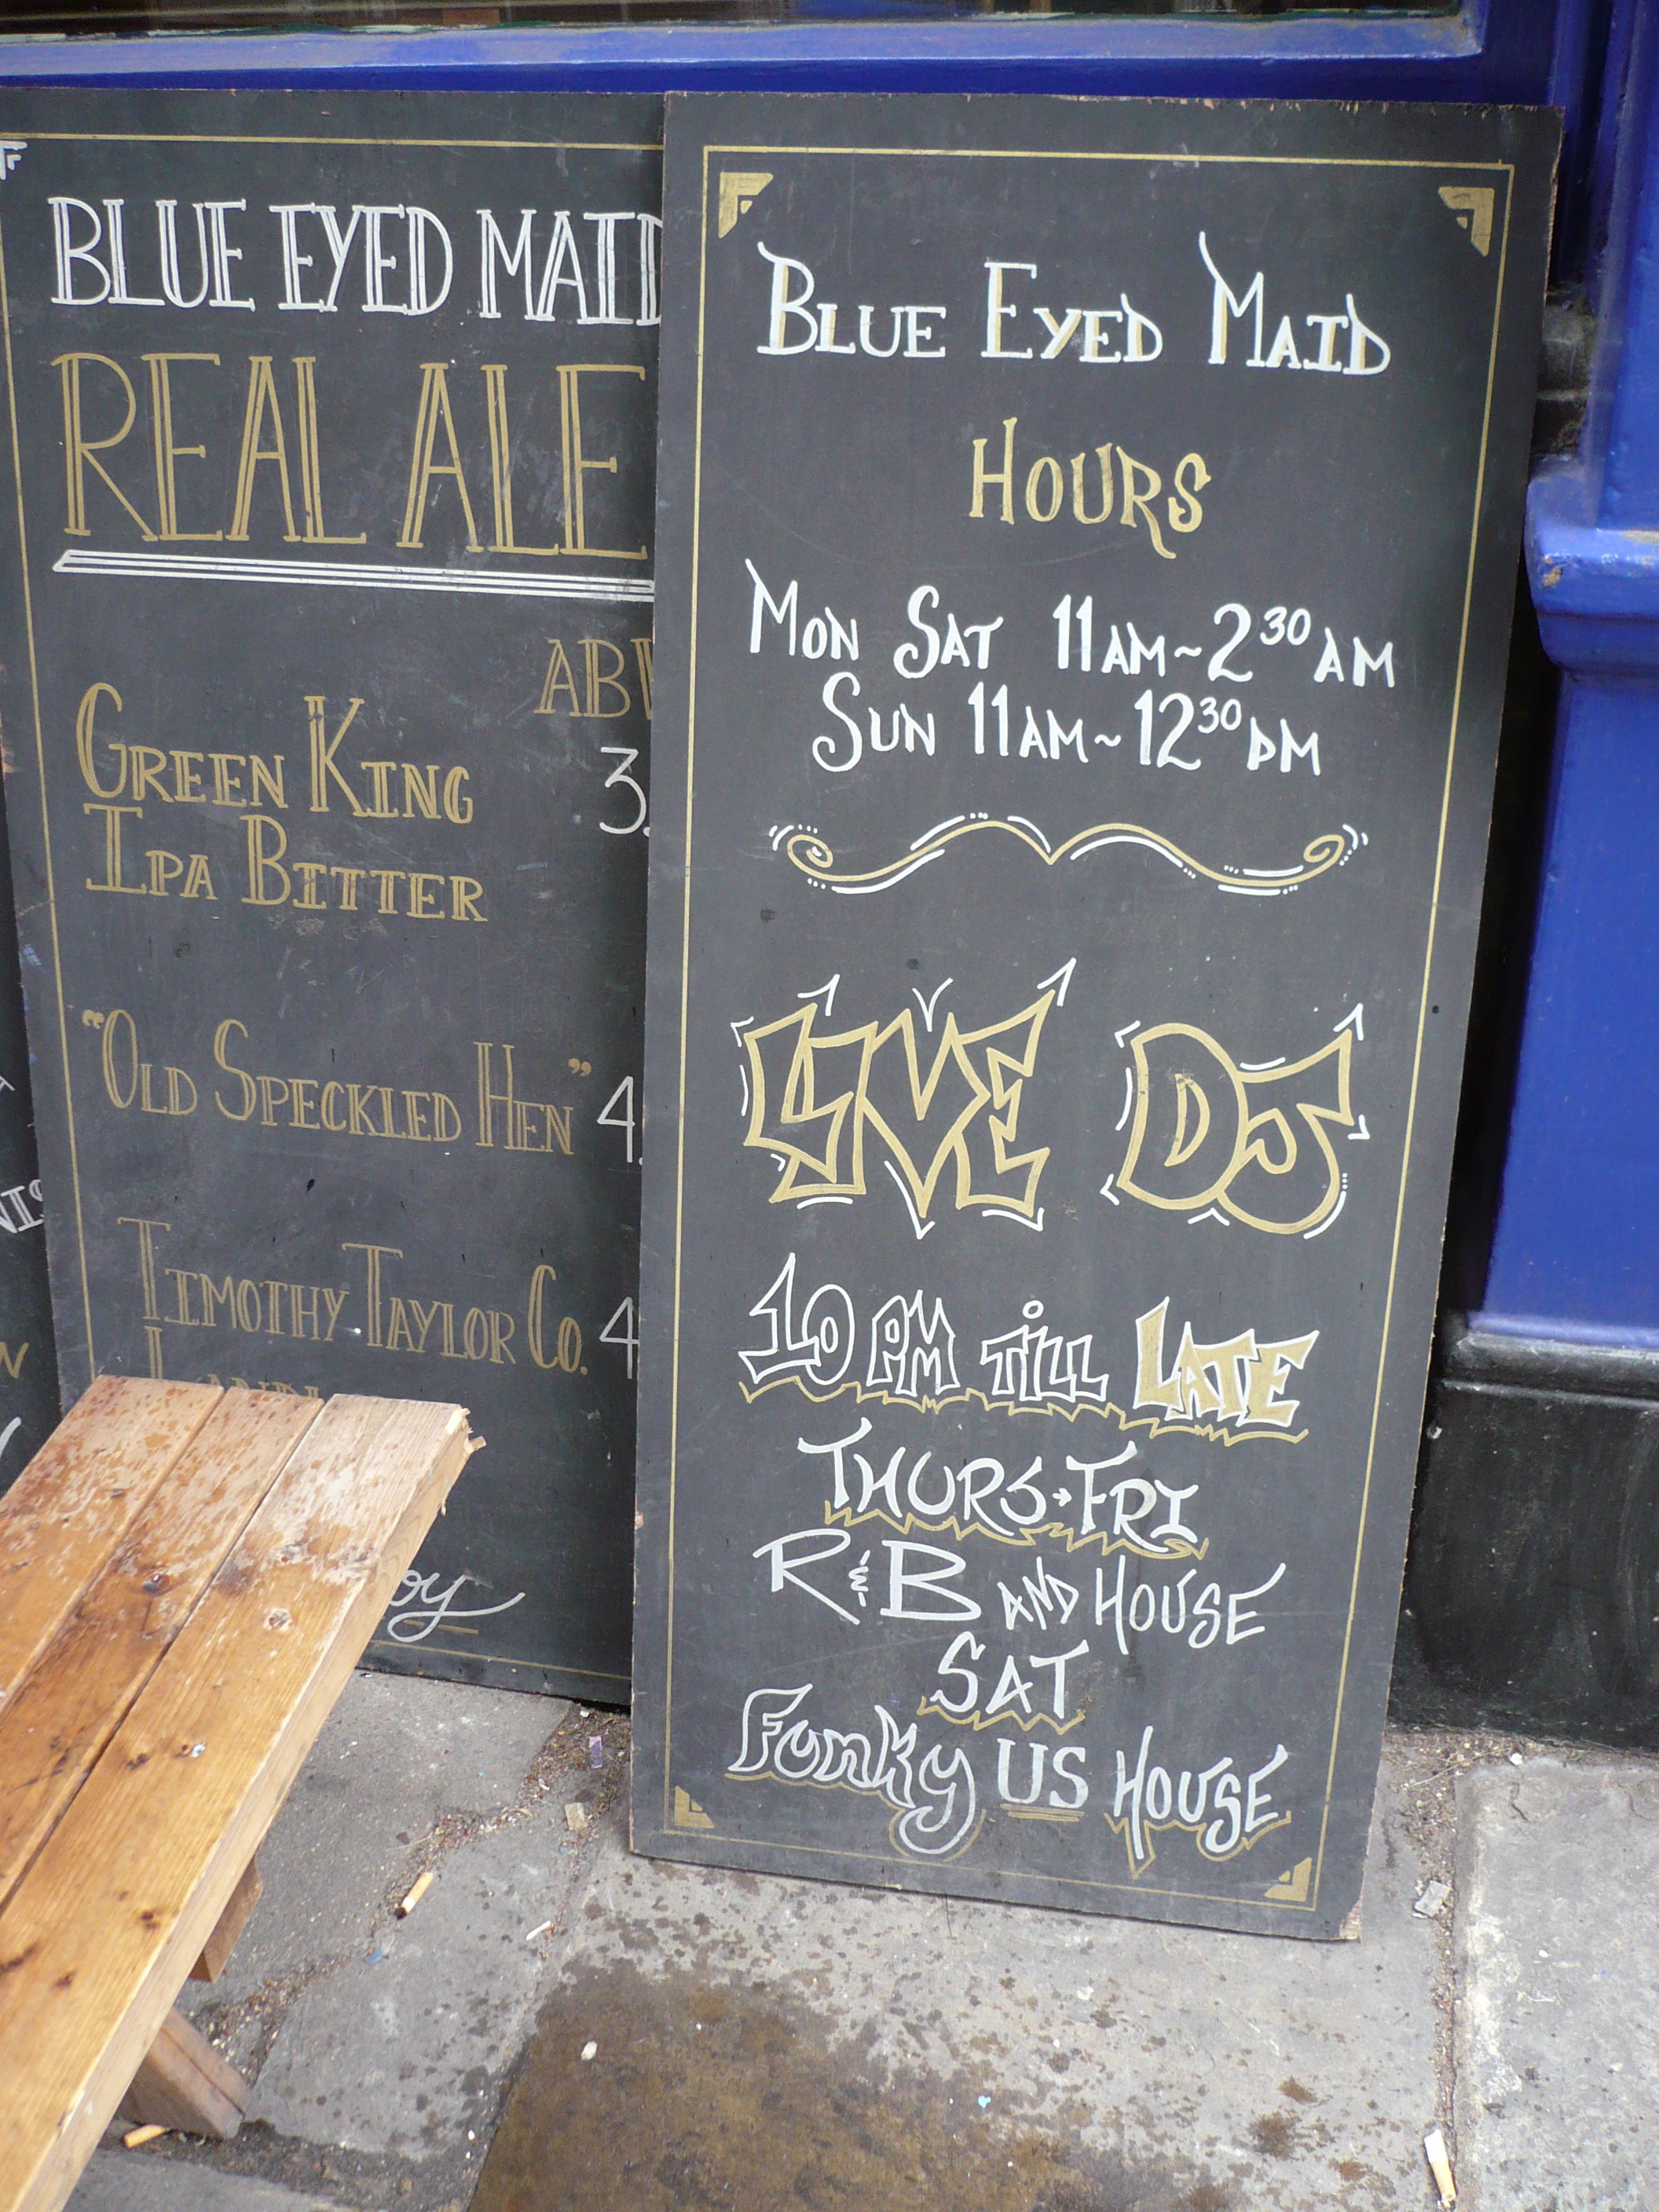 BLUE EYED MAID
REAL ALE
GREEN KING 3.
IPA BITTER
"OLD SPECKLED HEN" 4.
TIMOTHY TAYLOR CO. 4
BLUE EYED MAID
HOURS
MON SAT 11AM~2 30 AM
SUN 11AM~12 30 PM
LIVE DJ
10 PM TILL LATE
THURS→FRI
R&B AND HOUSE
SAT
Funky US HOUSE